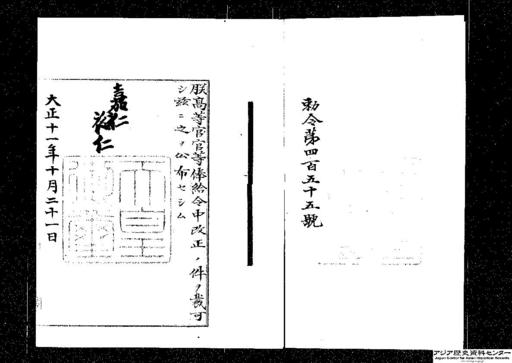 勅令第四百五十五號
朕高等官官等俸給令中改正ノ件ヲ裁可
シ茲ニ之ヲ公布セシム
嘉仁
裕仁
大正十一年十月二十一日
アジア歴史資料センター
Japan Center for Asian Historical Records